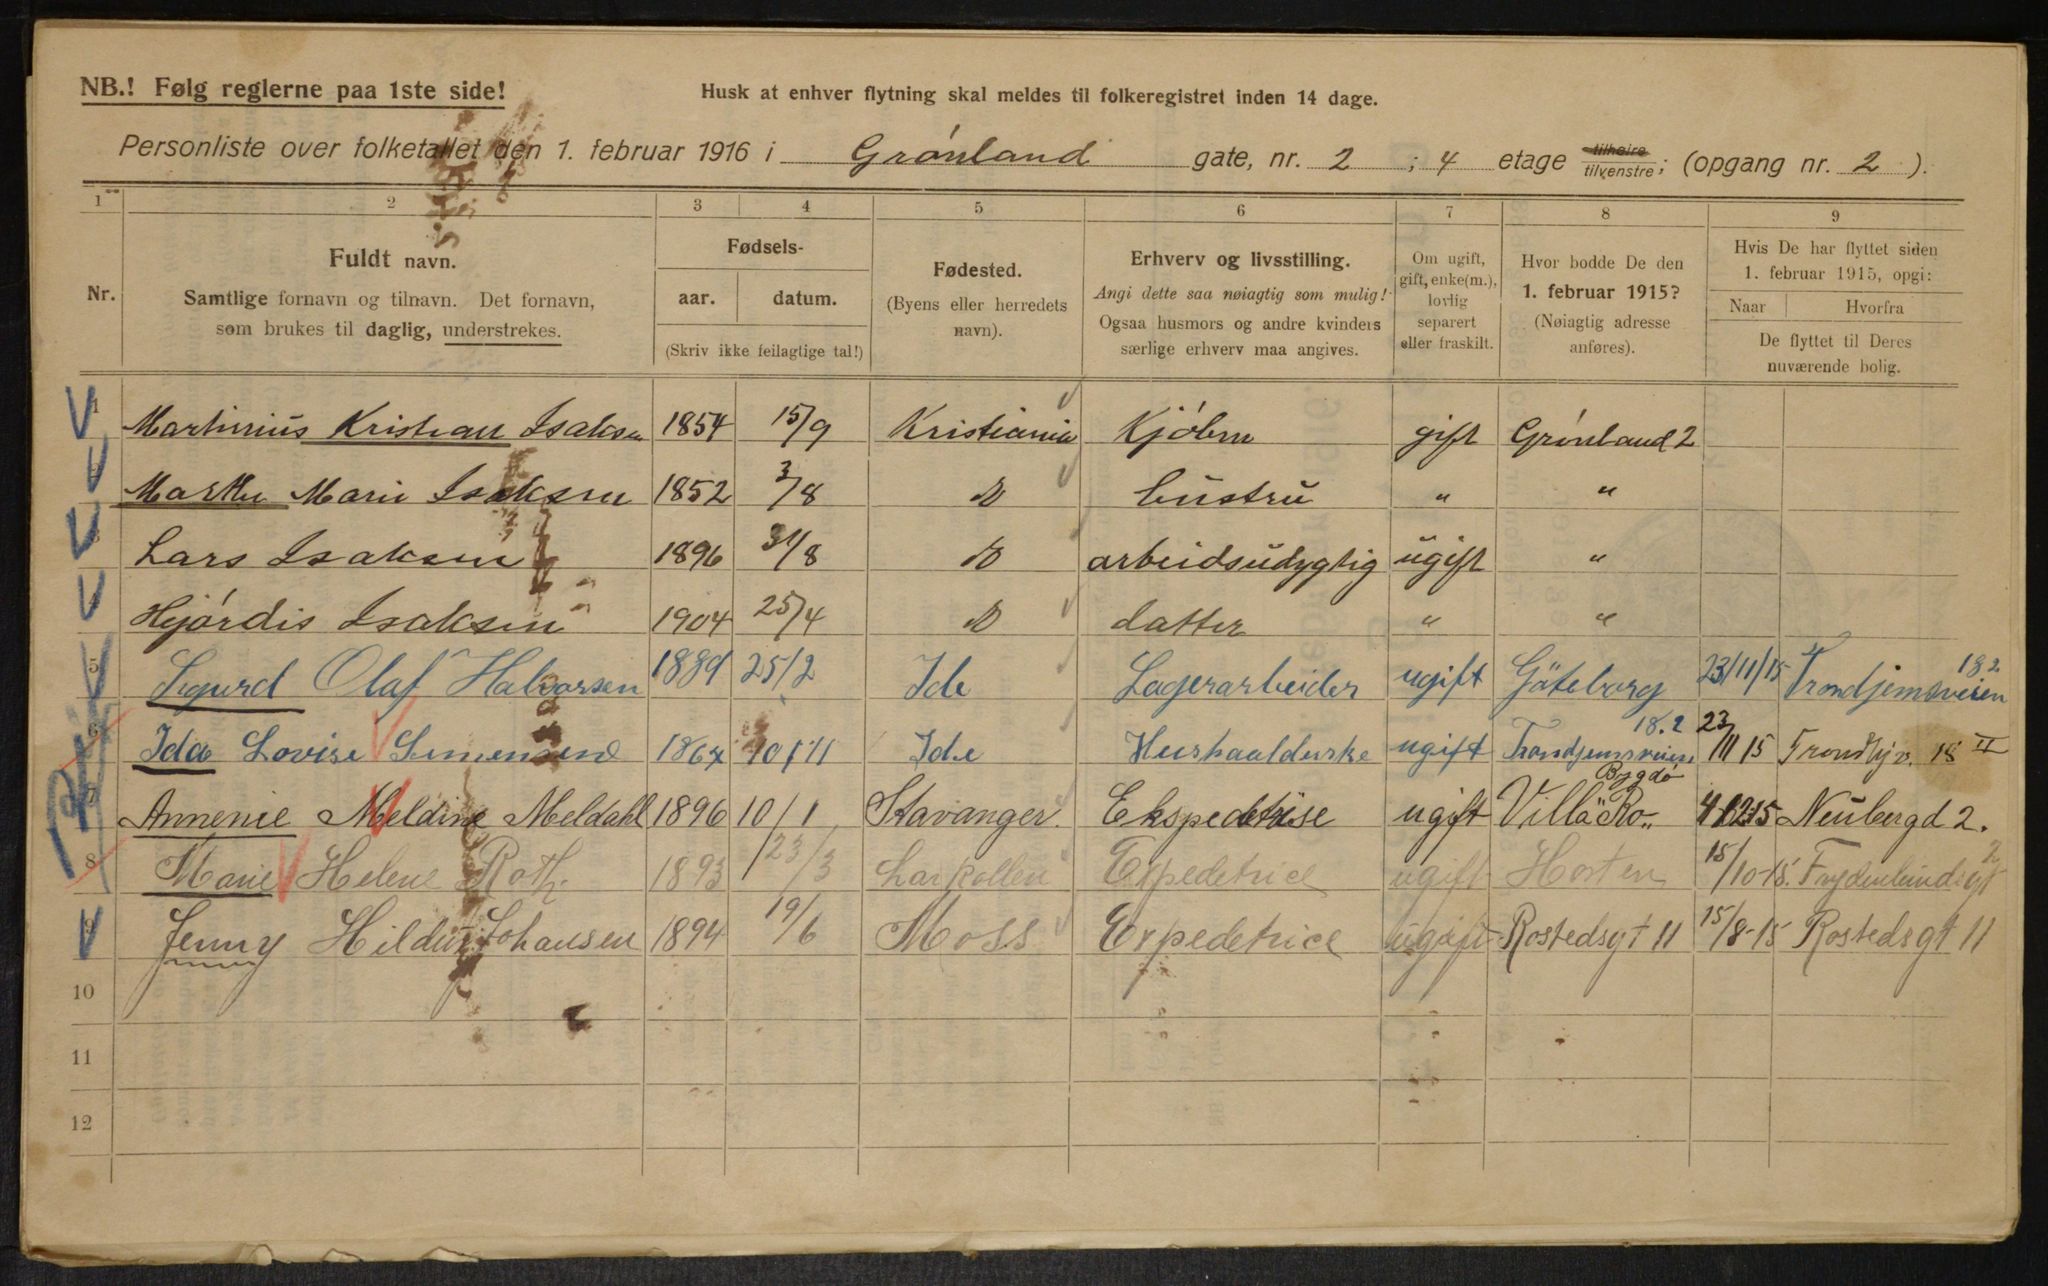 NB.! Følg reglerne paa 1ste side!
Husk at enhver flytning skal meldes til folkeregistret inden 14 dage.
Personliste over folketallet den 1. februar 1916 i Grønland gate, nr. 2 ; 4 etage tilhøire tilvenstre ; (opgang nr. 2 ).
1 2 3 4 5 6 7 8 9
Nr.
Fuldt navn.
Samtlige fornavn og tilnavn. Det fornavn,
som brukes til daglig, understrekes.
Fødsels-
aar. datum.
(Skriv ikke feilagtige tal!)
Fødested.
(Byens eller herredets
navn).
Erhverv og livsstilling.
Angi dette saa nøiagtig som mulig!
Ogsaa husmors og andre kvinders
særlige erhverv maa angives.
Om ugift,
gift, enke(m.),
lovlig
separert
eller fraskilt.
Hvor bodde De den
1. februar 1915?
(Nøiagtig adresse
anføres).
Hvis De har flyttet siden
1. februar 1915, opgi:
Naar Hvorfra
De flyttet til Deres
nuværende bolig.
1 Martinius Kristian Isaksen 1854 15/9 Kristiania Kjøbm gift Grønland 2
2 Marthe Marie Isaksen 1852 3/8 D hustru " "
3 Lars Isaksen 1896 31/8 D arbeidsudygtig ugift "
Hjørdis Isaksen 1904 25/4 D datter " "
5 Sigurd Olaf Halvorsen 1889 25/2 Ide Lagerarbeider ugift Göteborg 23/11/15 Trondjemsveien 18 2
6 Ida Lovise Simensen 1867 10/11 Ide Hushaalderske ugift Trondjemsveien 18.2 23/11 15 Trondhjv. 18 II
8 Annenie Meldine Meldahl 1896 10/1 Stavanger Ekspeditrise ugift Villa Ro Bygdø 4/12-15 Neubergd 2.
8 Marie Helene Roth. 1893 23/3 Larkollen Expedetrice ugift Horten 15/10-15. Frydenlundsgt 2
9 Jenny Hildur Johansen 1894 19/6 Moss Expedetrice ugift Rostedsgt 11 15/8-15 Rostedsgt 11
10
11
12